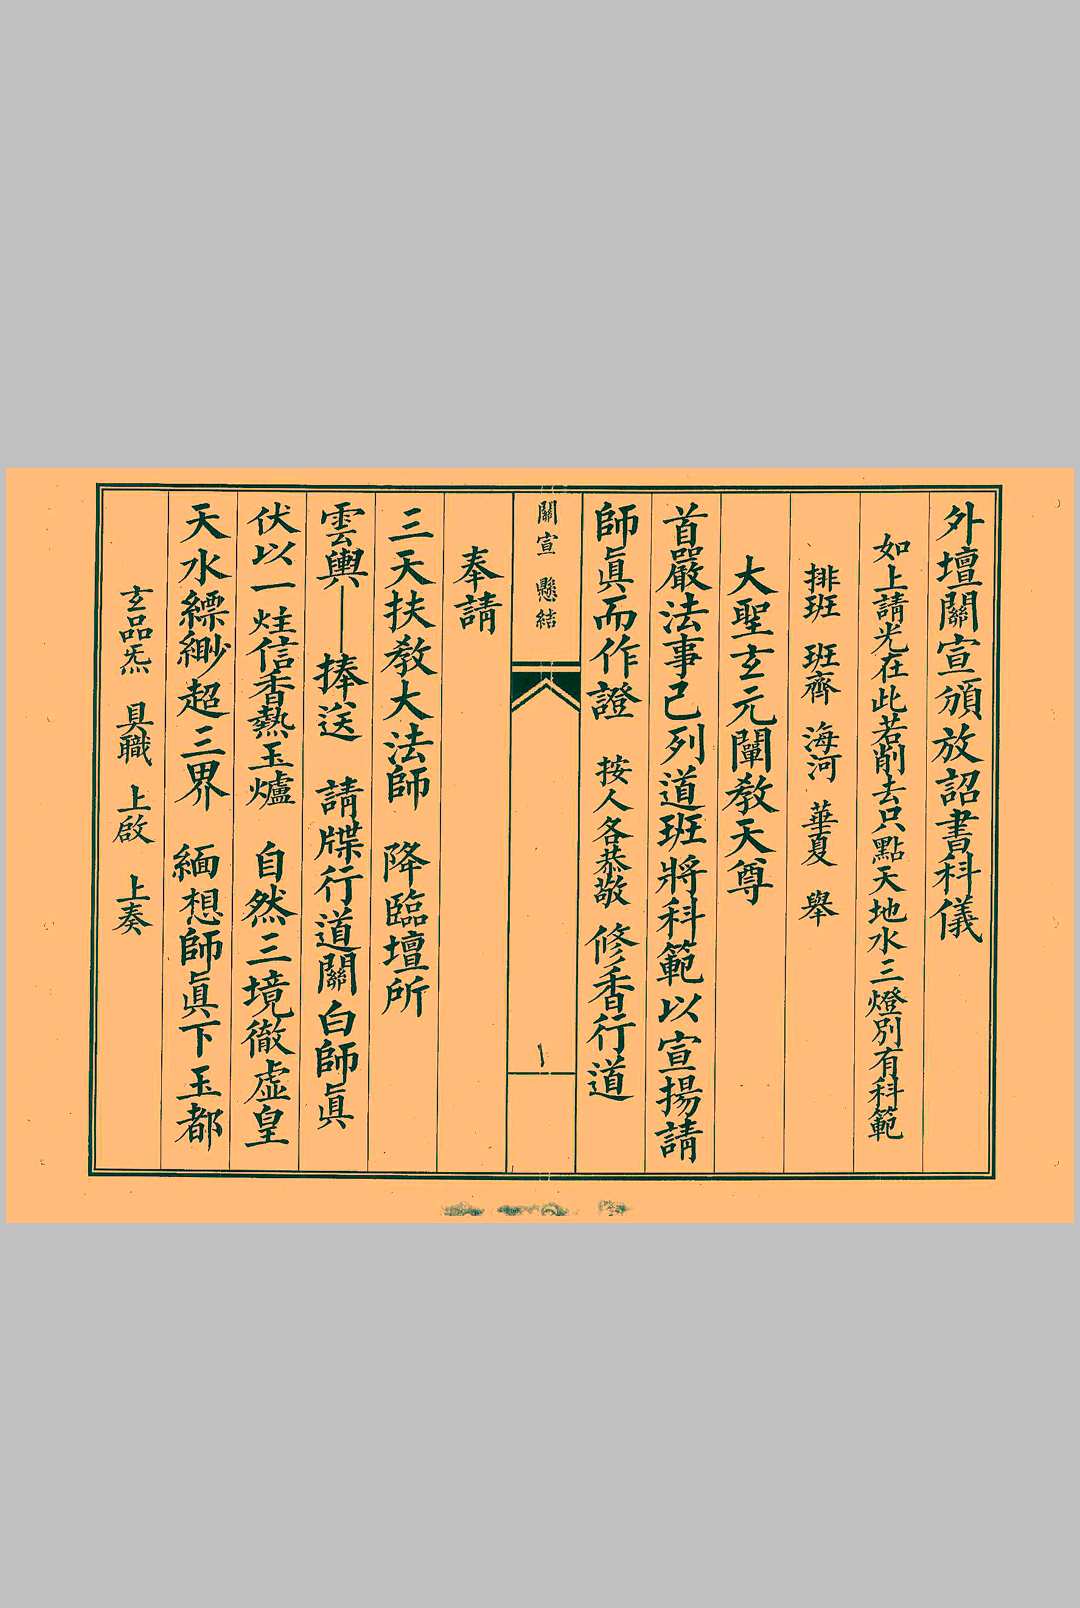 外壇關宣頒放詔書科儀
如上請光在此若削去只點天地水三燈別有科範
排班　班齊　海河　華夏　舉
大聖玄元闡教天尊
首嚴法事已列道班將科範以宣揚請
師眞而作證　按人各恭敬　修香行道
關宣　懸結
奉請
三天扶教大法師　降臨壇所
雲輿——捧送　請牒行道關白師眞
伏以一炷信香熱玉爐　自然三境徹虛皇
天水縹緲超三界　緬想師眞下玉都
玄品炁　具職　上啟　上奏